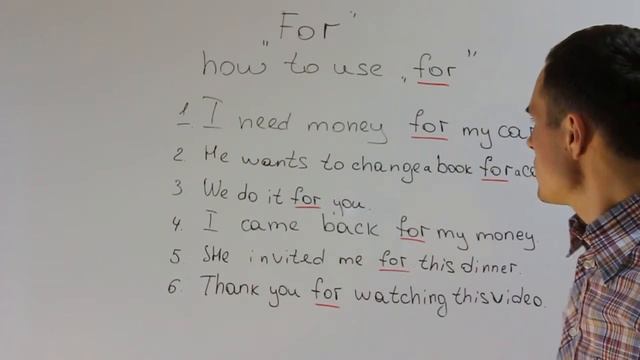 „For"
how to use „for"
1. I need money for my car
2. He wants to change a book for a
3 We do it for you.
4. I came back for my money.
5 SHe invited me for this dinner.
6. Thank you for watching this video.